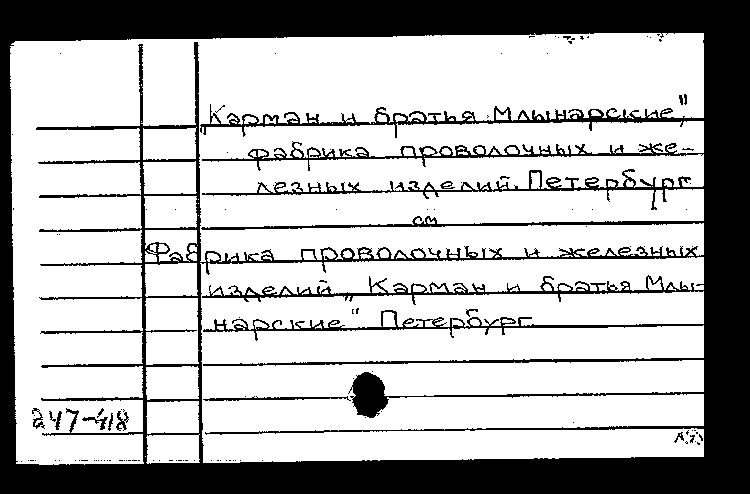 „Карман и братья Млынарские",
фабрика проволочных и же-
лезных изделий. Петербург
см
Фабрика проволочных и железных
изделий „Карман и братья Млы-
нарские" Петербург
247-418